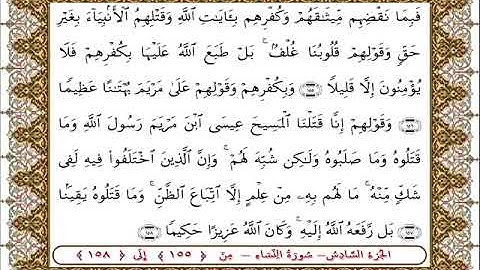 فَبِمَا نَقْضِهِم مِّيثَٰقَهُمْ وَكُفْرِهِم بِـَٔايَٰتِ ٱللَّهِ وَقَتْلِهِمُ ٱلْأَنۢبِيَآءَ بِغَيْرِ
حَقٍّ وَقَوْلِهِمْ قُلُوبُنَا غُلْفٌۢ ۚ بَلْ طَبَعَ ٱللَّهُ عَلَيْهَا بِكُفْرِهِمْ فَلَا
يُؤْمِنُونَ إِلَّا قَلِيلًا ۝١٥٥ وَبِكُفْرِهِمْ وَقَوْلِهِمْ عَلَىٰ مَرْيَمَ بُهْتَٰنًا عَظِيمًا
۝١٥٦ وَقَوْلِهِمْ إِنَّا قَتَلْنَا ٱلْمَسِيحَ عِيسَى ٱبْنَ مَرْيَمَ رَسُولَ ٱللَّهِ وَمَا
قَتَلُوهُ وَمَا صَلَبُوهُ وَلَٰكِن شُبِّهَ لَهُمْ ۚ وَإِنَّ ٱلَّذِينَ ٱخْتَلَفُوا۟ فِيهِ لَفِى
شَكٍّ مِّنْهُ ۚ مَا لَهُم بِهِۦ مِنْ عِلْمٍ إِلَّا ٱتِّبَاعَ ٱلظَّنِّ ۚ وَمَا قَتَلُوهُ يَقِينًۢا
۝١٥٧ بَل رَّفَعَهُ ٱللَّهُ إِلَيْهِ ۚ وَكَانَ ٱللَّهُ عَزِيزًا حَكِيمًا ۝١٥٨
الجزء السادس - سورة النساء - من ﴿ ١٥٥ ﴾ إلى ﴿ ١٥٨ ﴾